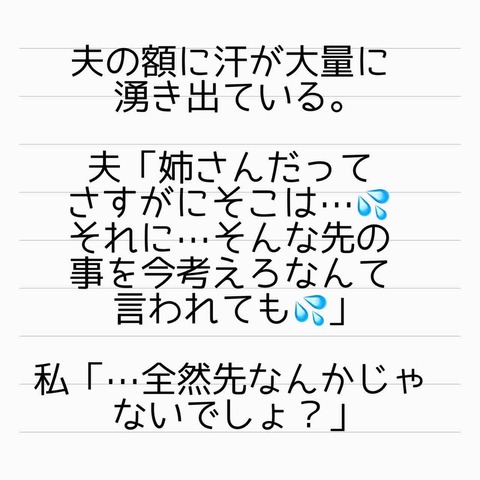 夫の額に汗が大量に
湧き出ている。
夫「姉さんだって
さすがにそこは…💦
それに…そんな先の
事を今考えろなんて
言われても💦」
私「…全然先なんかじゃ
ないでしょ？」